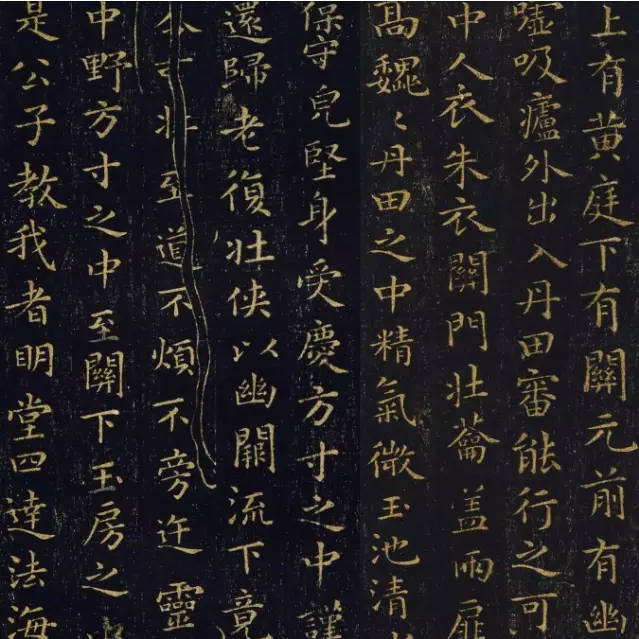 上有黄庭下有關元前有幽
嘘吸廬外出入丹田審能行之可
中人衣朱衣關門壯蘥盖兩扉
高魏〻丹田之中精氣微玉池清
保守皃堅身受慶方寸之中謹
還歸老復壯俠以幽闕流下竟
至道不煩不旁迕靈
中野方寸之中至關下玉房之
是公子教我者明堂四達法海